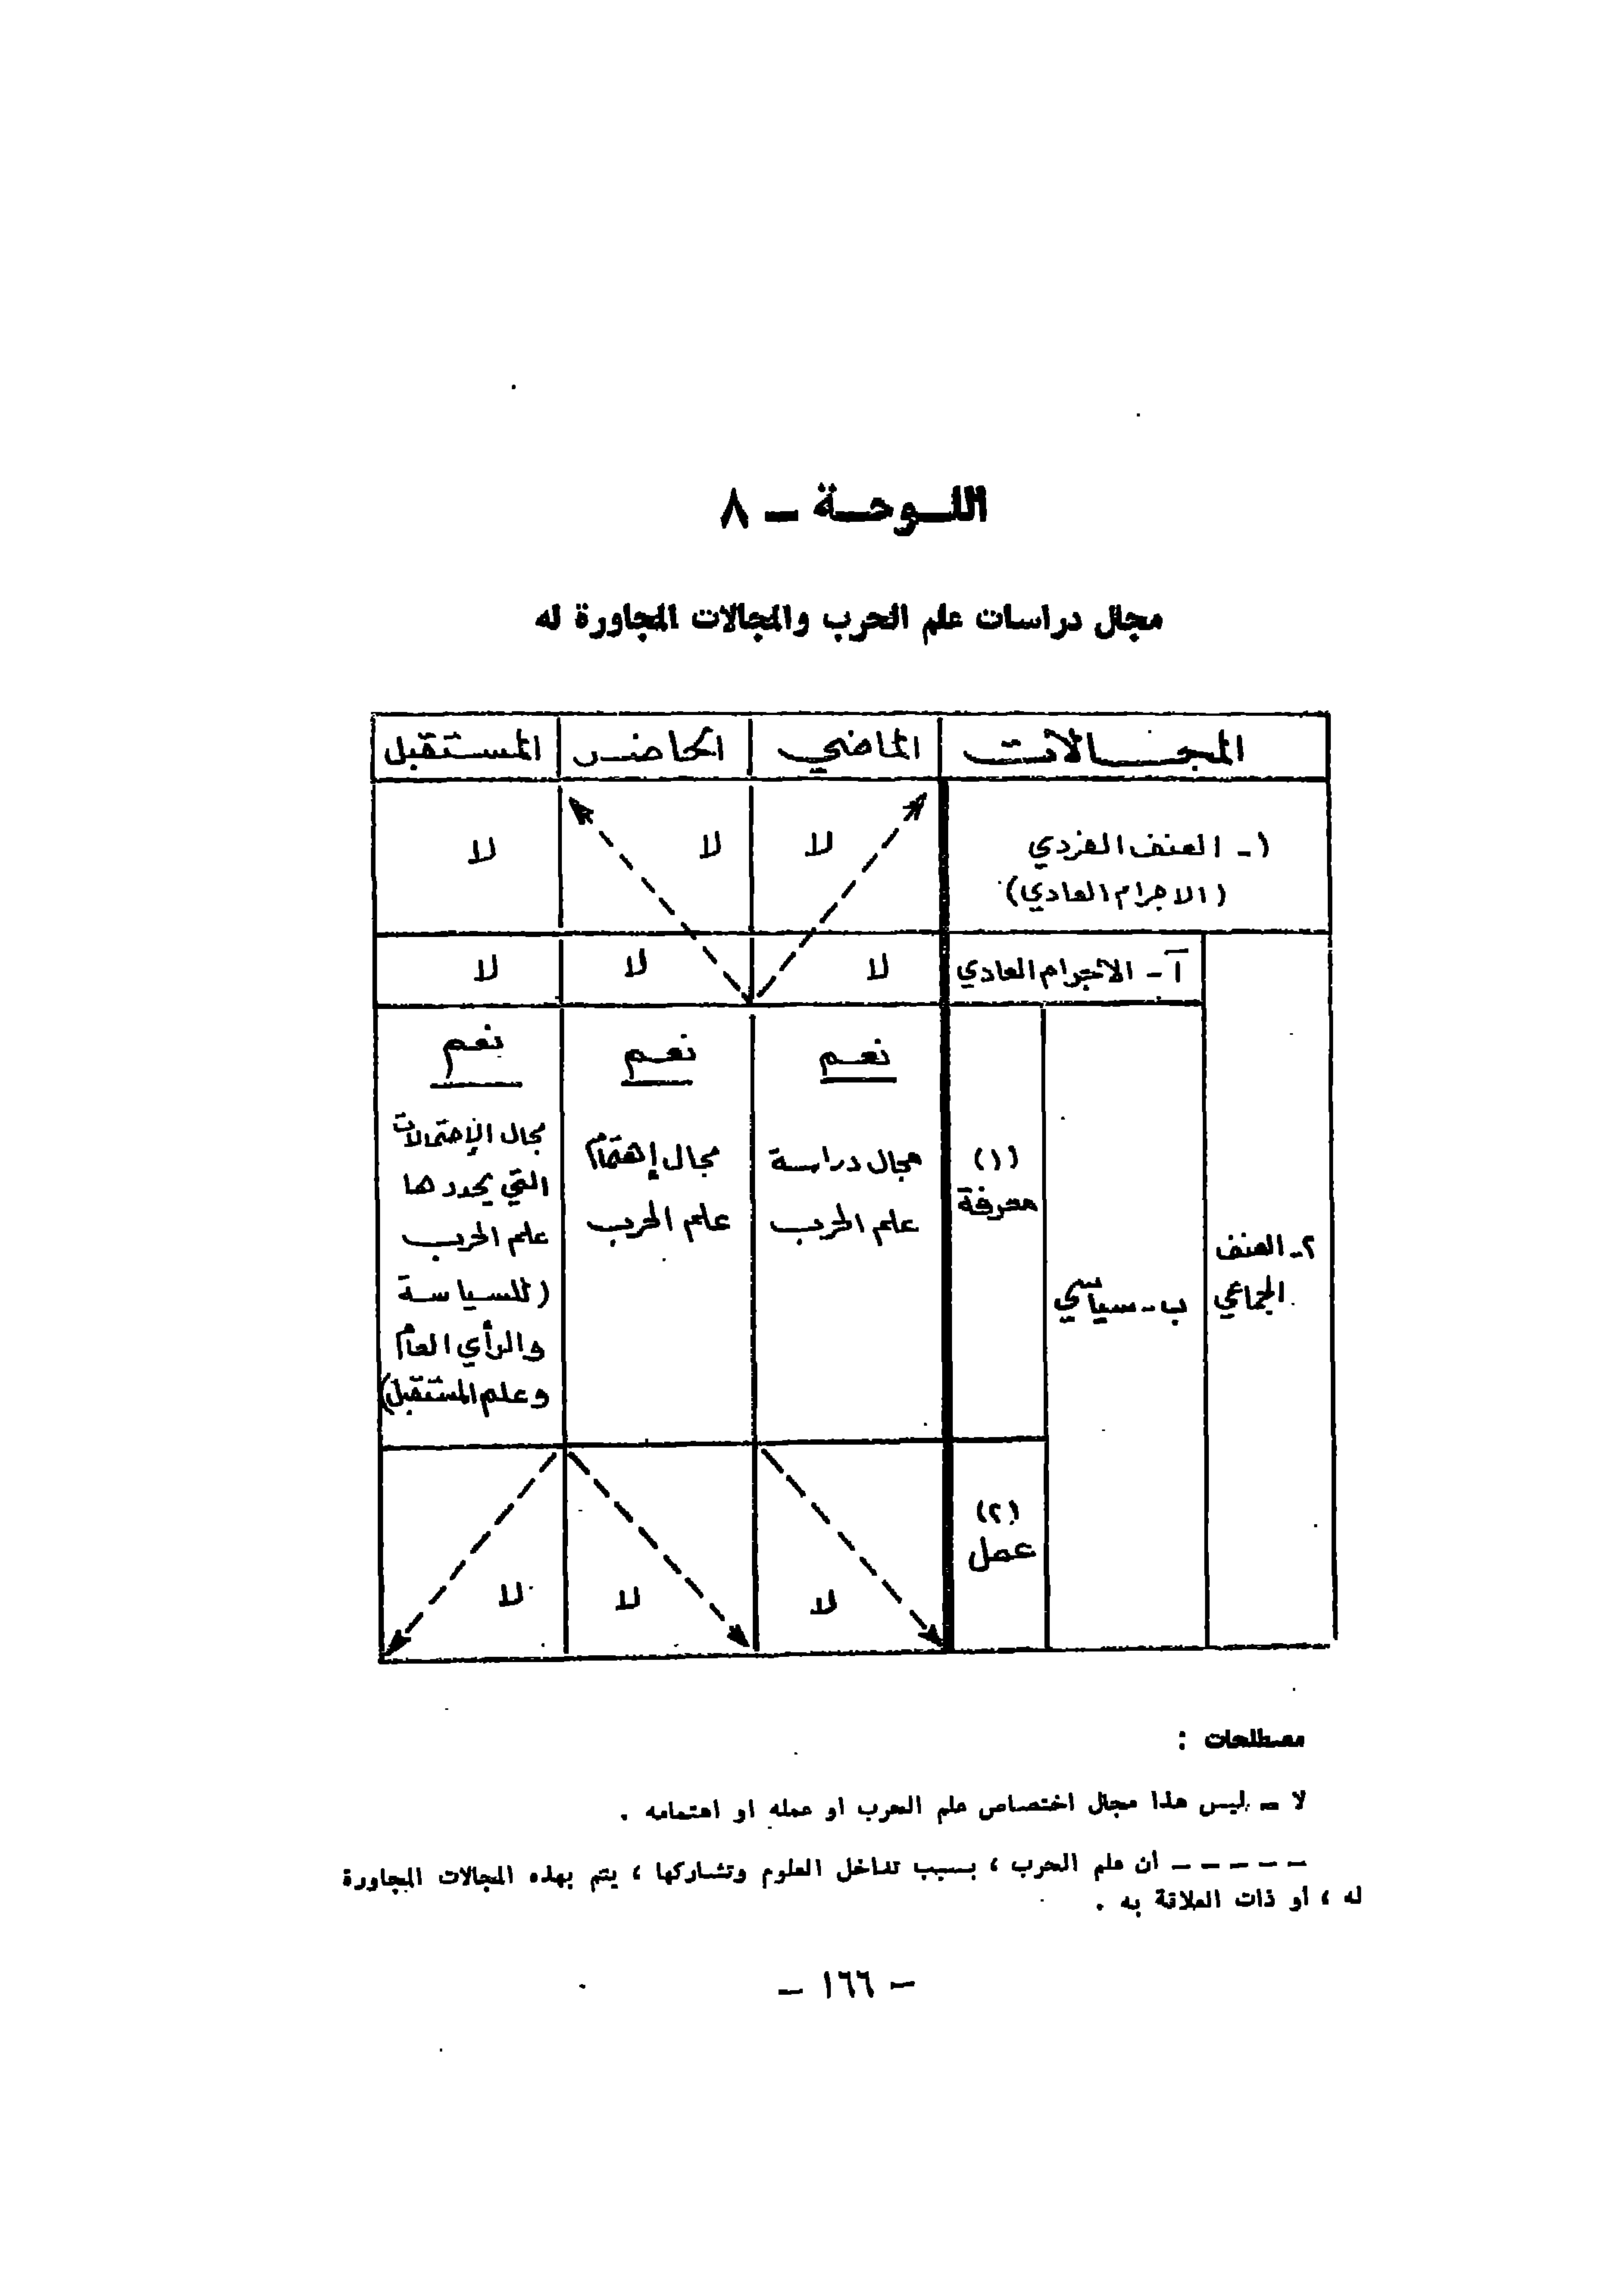 اللـوحـة ـ ٨
مجال دراسات علم الحرب والمجالات المجاورة له
المجـالات الماضي الحاضر المستقبل
١ـ العنف الفردي
(الاجرام العادي)
لا لا لا
آ - الاجرام العادي لا لا لا
٢ـ العنف
الجماعي
ب - سياسي
(١)
معرفة
نعم
مجال دراسة
علم الحرب
نعم
مجال إهتمام
علم الحرب
نعم
مجال الإحتمالات
التي يحددها
علم الحرب
(للسياسة
والرأي العام
وعلم المستقبل)
(٢)
عمل
لا لا لا
مصطلحات :
لا ـ ليس هذا مجال اختصاص علم الحرب او عمله او اهتمامه .
ـ ـ ـ ـ ـ أن علم الحرب ، بسبب تداخل العلوم وتشاركها ، يتم بهذه المجالات المجاورة
له ، أو ذات العلاقة به .
ـ ١٦٦ ـ